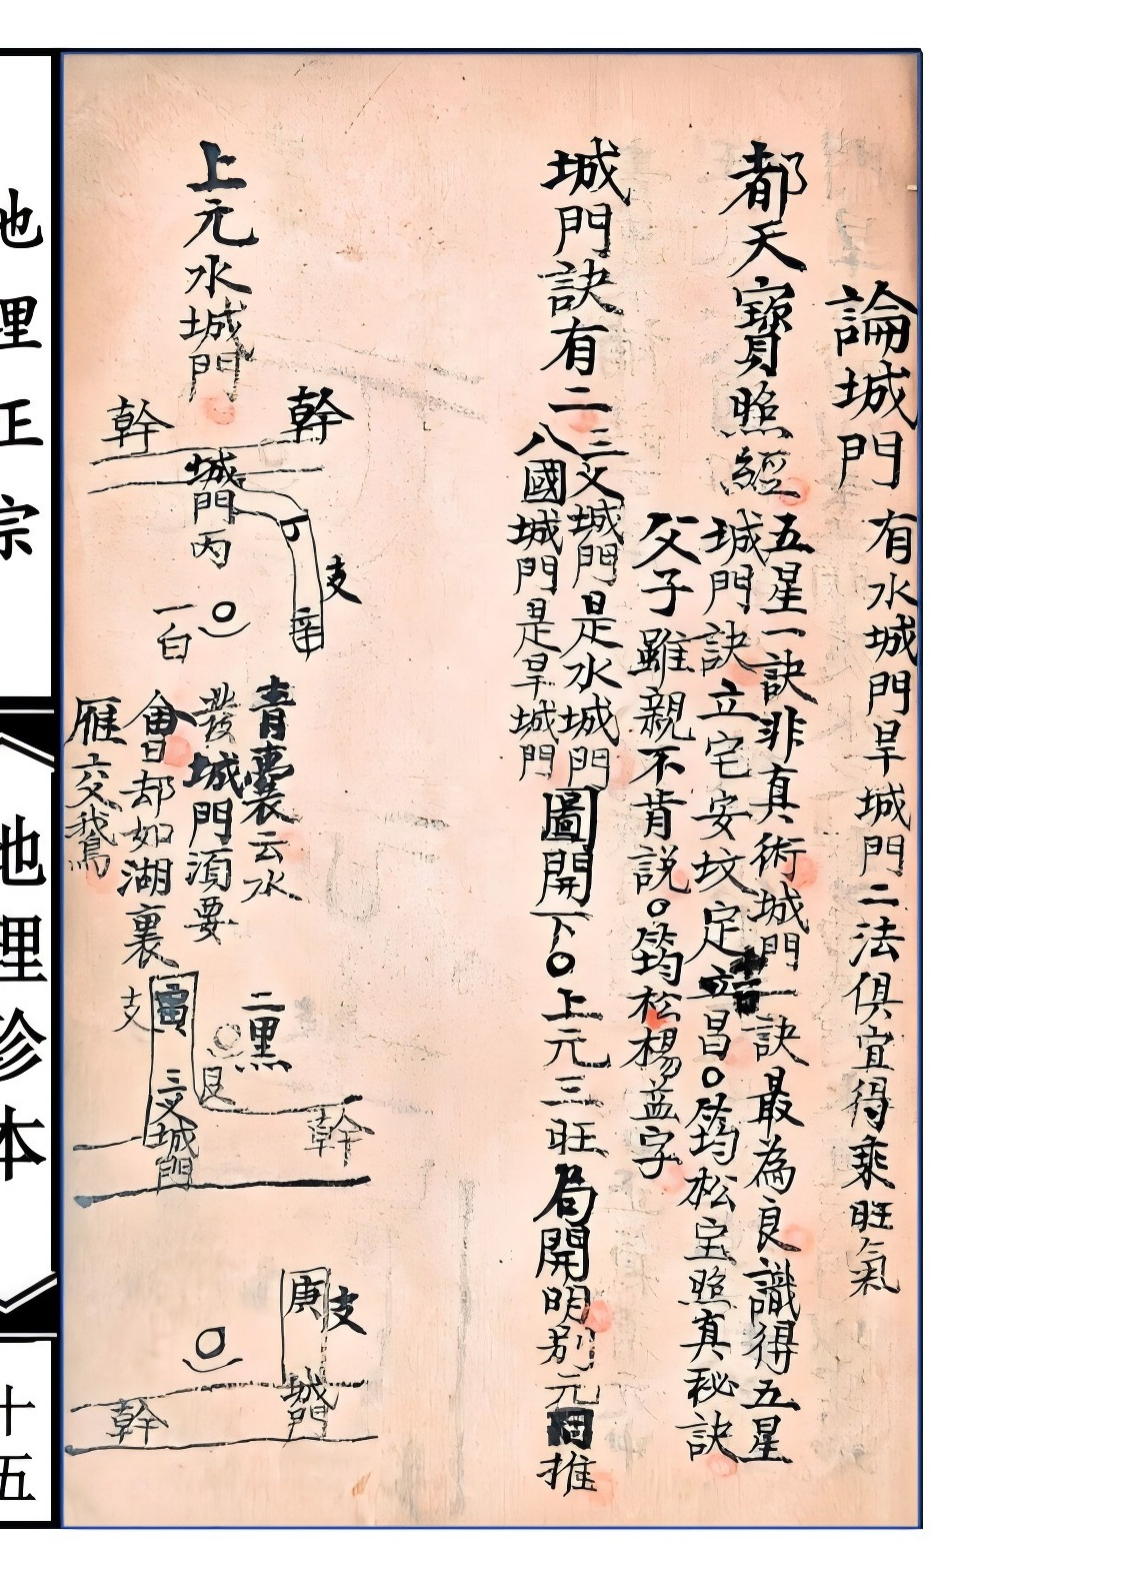 論城門
有水城門旱城門二法俱宜得乘旺氣
都天寶照經
五星一訣非真術城門一訣最為良識得五星
城門訣立宅安坟定吉昌。筠松宝照真秘訣
父子雖親不肯說。筠松楊益字
城門訣有二
三叉城門是水城門
八國城門是旱城門
圖開下。上元三旺局開明别元同推
上元水城門
幹
幹
城門丙
支
辛
一白
青囊云水
發城門須要
會却如湖裏
雁交鵝
二黑
艮
支
寅
三叉城門
幹
庚
支
城門
幹
地理正宗
《地理珍本》
十五